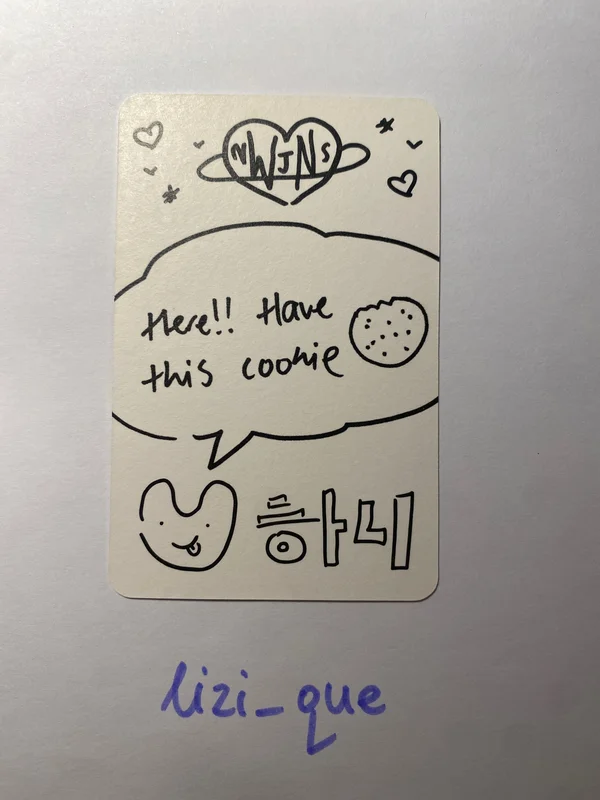 NWJNS
Here!! Have
this cookie
하니
lizi_que